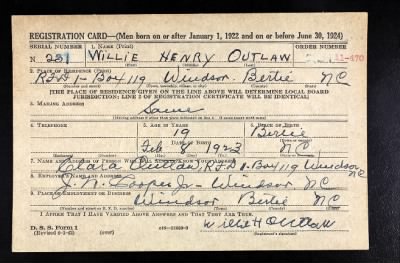 REGISTRATION CARD—(Men born on or after January 1, 1922 and on or before June 30, 1924)
SERIAL NUMBER 1. Name (Print) ORDER NUMBER
N 251 WILLIE HENRY OUTLAW 11-470
2. Place of Residence (Print)
RFD 1-Box 119 Windsor Bertie NC
[THE PLACE OF RESIDENCE GIVEN ON THE LINE ABOVE WILL DETERMINE LOCAL BOARD
JURISDICTION; LINE 2 OF REGISTRATION CERTIFICATE WILL BE IDENTICAL]
3. Mailing Address
Same
4. Telephone 5. Age in Years 6. Place of Birth
19 Bertie
Date of Birth
Feb 8 1923 NC
7. Name and Address of Person Who Will Always Know Your Address
Outlaw, RFD 1-Box 119 Windsor NC
8. Employer's Name and Address
Cooper Jr - Windsor NC
9. Place of Employment or Business
Windsor Bertie NC
I Affirm That I Have Verified Above Answers and That They Are True.
D. S. S. Form 1 (over)
Willie H Outlaw